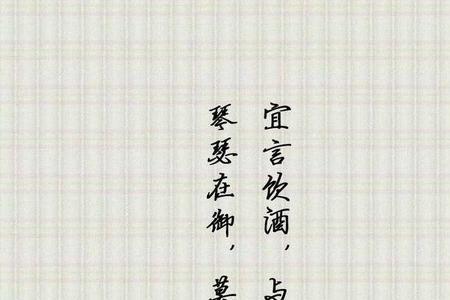 宜言饮酒，与
琴瑟在御，莫